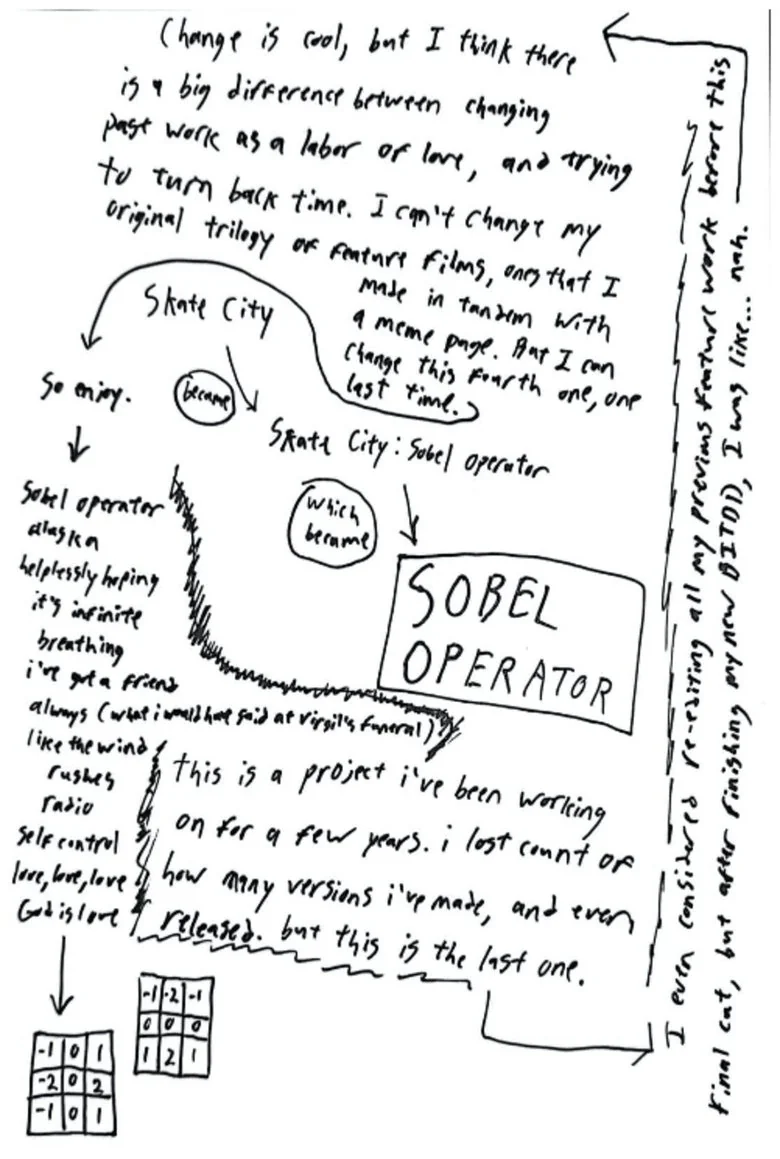 Skate City
became
Skate City: Sobel operator
which
became
SOBEL
OPERATOR
this is a project i've been working
on for a few years. i lost count of
how many versions i've made, and even
released. but this is the last one.
I even considered re-editing all my previous feature work before this
final cat, but after finishing my new BITDD, I was like... nah.
Change is cool, but I think there
is a big difference between changing
past work as a labor of love, and trying
to turn back time. I can't change my
original trilogy of feature films, ones that I
made in tandem with
a meme page. But I can
change this fourth one, one
last time.
So enjoy.
Sobel operator
alaska
helplessly hoping
it's infinite
breathing
i've got a friend
always (what i would have said at virgil's funeral)
like the wind
rushes
radio
self control
love, love, love
God is love
-1 0 1
-2 0 2
-1 0 1
-1 -2 -1
0 0 0
1 2 1